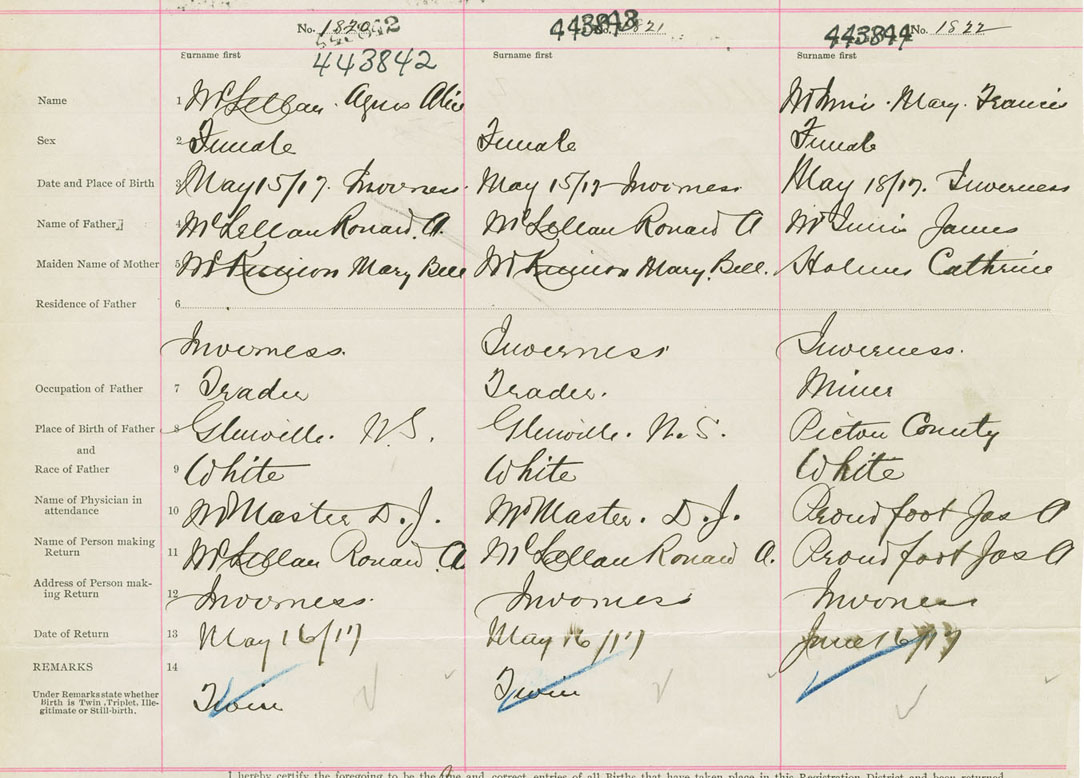 No. 1820 443842 443843 No. 1821 443844 No. 1822
443842
Surname first Surname first Surname first
Name 1 McLellan. Agnes Alice McInnis. Mary. Francis
Sex 2 Female Female Female
Date and Place of Birth 3 May 15/17. Inverness. May 15/17 Inverness May 18/17. Inverness
Name of Father 4 McLellan Ronald. A. McLellan Ronald A McInnis James
Maiden Name of Mother 5 McKinnon Mary Bell McKinnon Mary. Bell. Holmes Cathrine
Residence of Father 6
Inverness. Inverness Inverness.
Occupation of Father 7 Trader Trader. Miner
Place of Birth of Father 8 Glenville. N.S. Glenville. N.S. Picton County
and
Race of Father 9 White White White
Name of Physician in
attendance 10 McMaster D. J. McMaster. D. J. Proudfoot Jas A
Name of Person making
Return 11 McLellan Ronald. A McLellan Ronald A. Proudfoot Jas A
Address of Person mak-
ing Return 12 Inverness. Inverness Inverness
Date of Return 13 May 16/17 May 16/17 June 16/17
REMARKS 14
Under Remarks state whether
Birth is Twin, Triplet, Ille-
gitimate or Still-birth.
Twin Twin
I hereby certify the foregoing to be the true and correct entries of all Births that have taken place in this Registration District and been returned